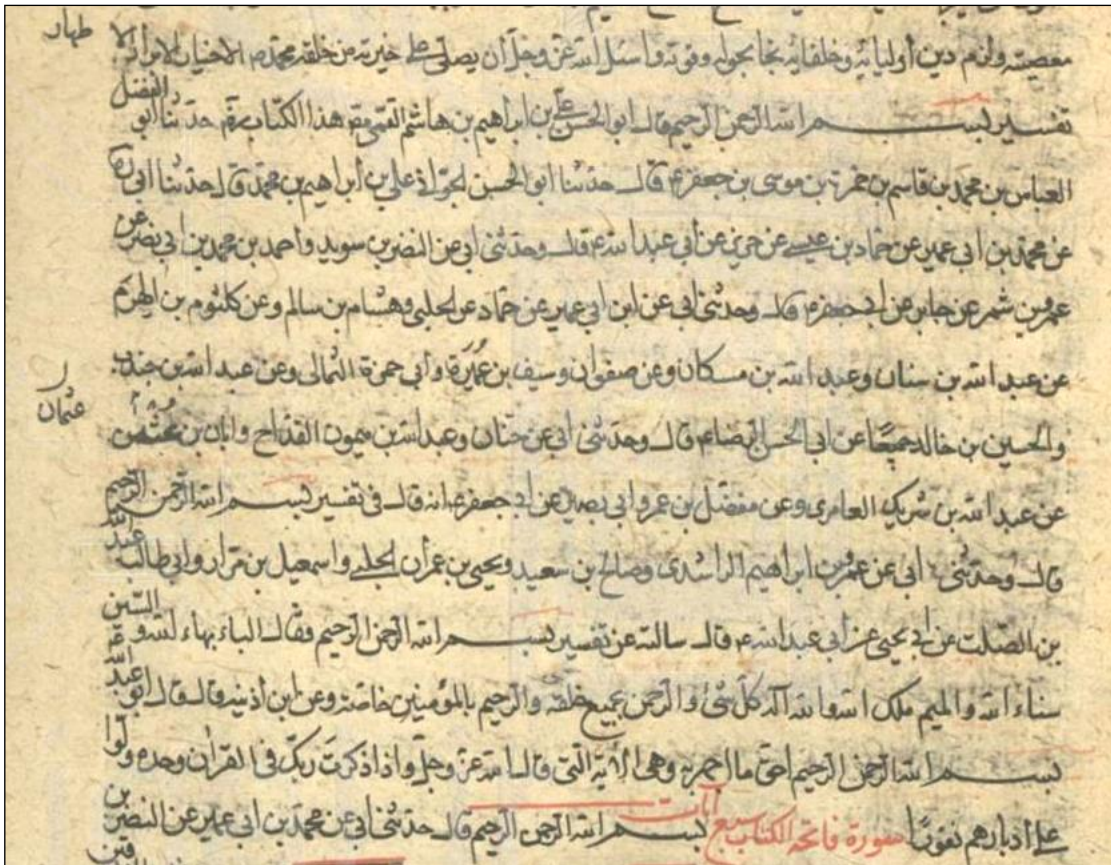 طهار
معصيته ولزم دين أوليائه وخلفائه نجا بحوله وقوته واسئل الله عز وجل أن يصلى على خيرته من خلقه محمد واله الاخيار الابرار
تفسير بسم الله الرحمن الرحيم قال ابو الحسن على بن ابراهيم بن هاشم القمى هذا الكتاب حدثنا ابو الفضل
العباس بن محمد بن قاسم بن حمزة بن موسى بن جعفر ع قال حدثنا ابو الحسن على بن أبراهيم بن محمد قال حدثنا ابى ره
عن محمد بن ابى عمير عن حماد بن عيسى عن حريز عن أبي عبد الله ع قال وحدثنى ابى عن النضر بن سويد وأحمد بن محمد بن ابى نصر عن
عمرو بن شمر عن جابر عن ابى جعفر ع قال وحدثنى ابى عن ابن ابى عمير عن حماد عن الحلبى وهشام بن سالم وعن كلثوم بن الهرم
عن عبد الله بن سنان وعبد الله بن مسكان وعن صفوان وسيف بن عميرة وأبي حمزة الثمالى وعن عبد الله بن جندب
عثمان
والحسين بن خالد جميعا عن ابى الحسن الرضا ع قال وحدثنى ابى عن حنان وعبد الله بن ميمون القداح وابان بن
عن عبد الله بن شريك العامرى وعن مفضل بن عمر وابى بصير عن ابى جعفر ع انه قال فى تفسير بسم الله الرحمن الرحيم
قال وحدثنى ابى عن عمرو بن ابراهيم الراشدى وصالح بن سعيد ويحيى بن عمران الحلبى واسمعيل بن مرار وابى طالب عبد الله
بن الصلت عن ابى يحيى عن ابى عبد الله ع قال سالته عن تفسير بسم الله الرحمن الرحيم فقال الباء بهاء الله والسين
سناء الله والميم ملك الله والله اله كل شئ والرحمن بجميع خلقه والرحيم بالمؤمنين خاصة وعن ابن أذينه قال قال ابو عبد الله ع
بسم الله الرحمن الرحيم احق ما اجهر به وهى الاية التى قال الله عز وجل واذا ذكرت ربك فى القرآن وحده ولوا
على ادبارهم نفورا سورة فاتحة الكتاب سبع آيات بسم الله الرحمن الرحيم قال حدثنى ابى عن محمد بن ابى عمير عن النضر بن